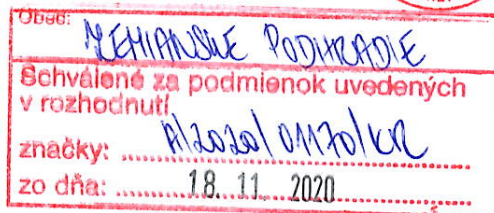 Obec: ZEMIANSKE PODHRADIE
Schválené za podmienok uvedených
v rozhodnutí
značky: A/2020/01170/KR
zo dňa: 18. 11. 2020